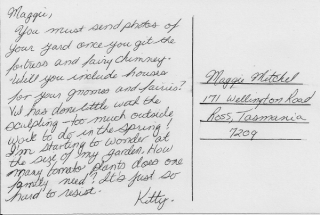 Maggie,
You must send photos of
your yard once you git the
fortress and fairy chimney.
Will you include houses
for your gnomes and fairies?
has done little with the
sculpting - too much outside
work to do in the spring!
I'm starting to wonder at
the size of my garden. How
many tomato plants does one
family need? It's just so
hard to resist.
Kitty.
Maggie Mitchel
171 Wellington Road
Ross, Tasmania
7209